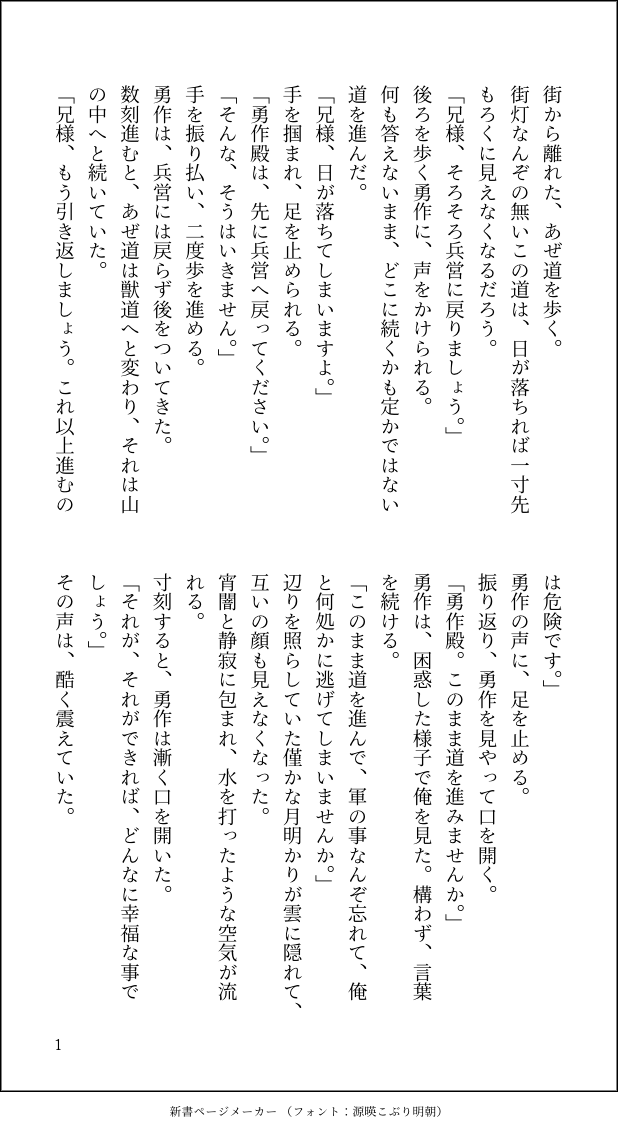 街から離れた、あぜ道を歩く。
街灯なんぞの無いこの道は、日が落ちれば一寸先
もろくに見えなくなるだろう。
「兄様、そろそろ兵営に戻りましょう。」
後ろを歩く勇作に、声をかけられる。
何も答えないまま、どこに続くかも定かではない
道を進んだ。
「兄様、日が落ちてしまいますよ。」
手を掴まれ、足を止められる。
「勇作殿は、先に兵営へ戻ってください。」
「そんな、そうはいきません。」
手を振り払い、二度歩を進める。
勇作は、兵営には戻らず後をついてきた。
数刻進むと、あぜ道は獣道へと変わり、それは山
の中へと続いていた。
「兄様、もう引き返しましょう。これ以上進むの
は危険です。」
勇作の声に、足を止める。
振り返り、勇作を見やって口を開く。
「勇作殿。このまま道を進みませんか。」
勇作は、困惑した様子で俺を見た。構わず、言葉
を続ける。
「このまま道を進んで、軍の事なんぞ忘れて、俺
と何処かに逃げてしまいませんか。」
辺りを照らしていた僅かな月明かりが雲に隠れて、
互いの顔も見えなくなった。
宵闇と静寂に包まれ、水を打ったような空気が流
れる。
寸刻すると、勇作は漸く口を開いた。
「それが、それができれば、どんなに幸福な事で
しょう。」
その声は、酷く震えていた。
1
新書ページメーカー（フォント：源暎こぶり明朝）